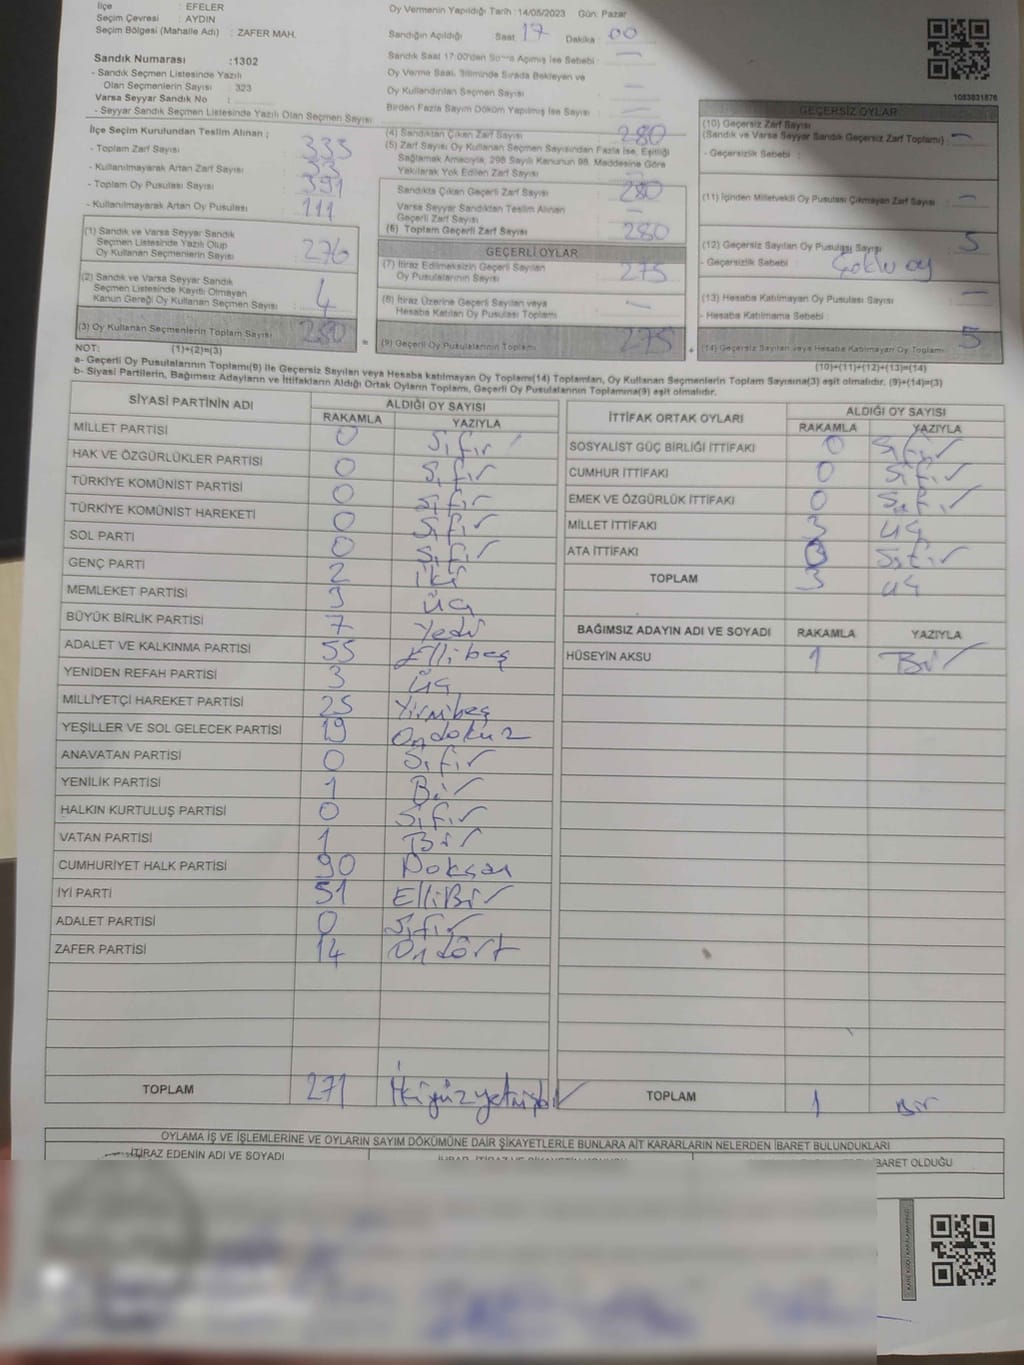 İlçe : EFELER
Seçim Çevresi : AYDIN
Seçim Bölgesi (Mahalle Adı) : ZAFER MAH.
Sandık Numarası :1302
- Sandık Seçmen Listesinde Yazılı
Olan Seçmenlerin Sayısı : 323
Varsa Seyyar Sandık No :
- Seyyar Sandık Seçmen Listesinde Yazılı Olan Seçmen Sayısı
Oy Vermenin Yapıldığı Tarih : 14/05/2023 Gün: Pazar
Sandığın Açıldığı Saat 17 Dakika : 00
Sandık Saat 17:00'den Sonra Açılmış İse Sebebi : —
Oy Verme Saati Bitiminde Sırada Bekleyen ve
Oy Kullandırılan Seçmen Sayısı : —
Birden Fazla Sayım Döküm Yapılmış İse Sayısı : —
1083831876
İlçe Seçim Kurulundan Teslim Alınan ;
- Toplam Zarf Sayısı : 333
- Kullanılmayarak Artan Zarf Sayısı : 53
- Toplam Oy Pusulası Sayısı : 391
- Kullanılmayarak Artan Oy Pusulası : 111
(1) Sandık ve Varsa Seyyar Sandık
Seçmen Listesinde Yazılı Olup
Oy Kullanan Seçmenlerin Sayısı : 276
(2) Sandık ve Varsa Seyyar Sandık
Seçmen Listesinde Kayıtlı Olmayan
Kanun Gereği Oy Kullanan Seçmen Sayısı : 4
(3) Oy Kullanan Seçmenlerin Toplam Sayısı : 280
(4) Sandıktan Çıkan Zarf Sayısı : 280
(5) Zarf Sayısı Oy Kullanan Seçmen Sayısından Fazla İse, Eşitliği
Sağlamak Amacıyla, 298 Sayılı Kanunun 98. Maddesine Göre
Yakılarak Yok Edilen Zarf Sayısı : —
Sandıkta Çıkan Geçerli Zarf Sayısı : 280
Varsa Seyyar Sandıktan Teslim Alınan
Geçerli Zarf Sayısı : —
(6) Toplam Geçerli Zarf Sayısı : 280
GEÇERLİ OYLAR
(7) İtiraz Edilmeksizin Geçerli Sayılan
Oy Pusulalarının Sayısı : 275
(8) İtiraz Üzerine Geçerli Sayılan veya
Hesaba Katılan Oy Pusulası Toplamı : —
= (9) Geçerli Oy Pusulalarının Toplamı : 275
GEÇERSİZ OYLAR
(10) Geçersiz Zarf Sayısı
(Sandık ve Varsa Seyyar Sandık Geçersiz Zarf Toplamı) : —
- Geçersizlik Sebebi :
(11) İçinden Milletvekili Oy Pusulası Çıkmayan Zarf Sayısı : —
(12) Geçersiz Sayılan Oy Pusulası Sayısı : 5
- Geçersizlik Sebebi : Çoklu oy
(13) Hesaba Katılmayan Oy Pusulası Sayısı : —
- Hesaba Katılmama Sebebi :
+ (14) Geçersiz Sayılan veya Hesaba Katılmayan Oy Toplamı : 5
NOT: (1)+(2)=(3) (10)+(11)+(12)+(13)=(14)
a- Geçerli Oy Pusulalarının Toplamı(9) ile Geçersiz Sayılan veya Hesaba katılmayan Oy Toplamı(14) Toplamları, Oy Kullanan Seçmenlerin Toplam Sayısına(3) eşit olmalıdır. (9)+(14)=(3)
b- Siyasi Partilerin, Bağımsız Adayların ve İttifakların Aldığı Ortak Oyların Toplamı, Geçerli Oy Pusulalarının Toplamına(9) eşit olmalıdır.
SİYASİ PARTİNİN ADI ALDIĞI OY SAYISI
RAKAMLA YAZIYLA
MİLLET PARTİSİ 0 Sıfır
HAK VE ÖZGÜRLÜKLER PARTİSİ 0 Sıfır
TÜRKİYE KOMÜNİST PARTİSİ 0 Sıfır
TÜRKİYE KOMÜNİST HAREKETİ 0 Sıfır
SOL PARTİ 0 Sıfır
GENÇ PARTİ 2 iki
MEMLEKET PARTİSİ 3 üç
BÜYÜK BİRLİK PARTİSİ 7 Yedi
ADALET VE KALKINMA PARTİSİ 55 Ellibeş
YENİDEN REFAH PARTİSİ 3 üç
MİLLİYETÇİ HAREKET PARTİSİ 25 Yirmibeş
YEŞİLLER VE SOL GELECEK PARTİSİ 19 Ondokuz
ANAVATAN PARTİSİ 0 Sıfır
YENİLİK PARTİSİ 1 Bir
HALKIN KURTULUŞ PARTİSİ 0 Sıfır
VATAN PARTİSİ 1 Bir
CUMHURİYET HALK PARTİSİ 90 Doksan
İYİ PARTİ 51 ElliBir
ADALET PARTİSİ 0 Sıfır
ZAFER PARTİSİ 14 Ondört
TOPLAM 271 İkiyüzyetmişbir
İTTİFAK ORTAK OYLARI ALDIĞI OY SAYISI
RAKAMLA YAZIYLA
SOSYALİST GÜÇ BİRLİĞİ İTTİFAKI 0 Sıfır
CUMHUR İTTİFAKI 0 Sıfır
EMEK VE ÖZGÜRLÜK İTTİFAKI 0 Sıfır
MİLLET İTTİFAKI 3 üç
ATA İTTİFAKI 0 Sıfır
TOPLAM 3 üç
BAĞIMSIZ ADAYIN ADI VE SOYADI RAKAMLA YAZIYLA
HÜSEYİN AKSU 1 Bir
TOPLAM 1 Bir
OYLAMA İŞ VE İŞLEMLERİNE VE OYLARIN SAYIM DÖKÜMÜNE DAİR ŞİKAYETLERLE BUNLARA AİT KARARLARIN NELERDEN İBARET BULUNDUKLARI
İTİRAZ EDENİN ADI VE SOYADI
İBARET OLDUĞU